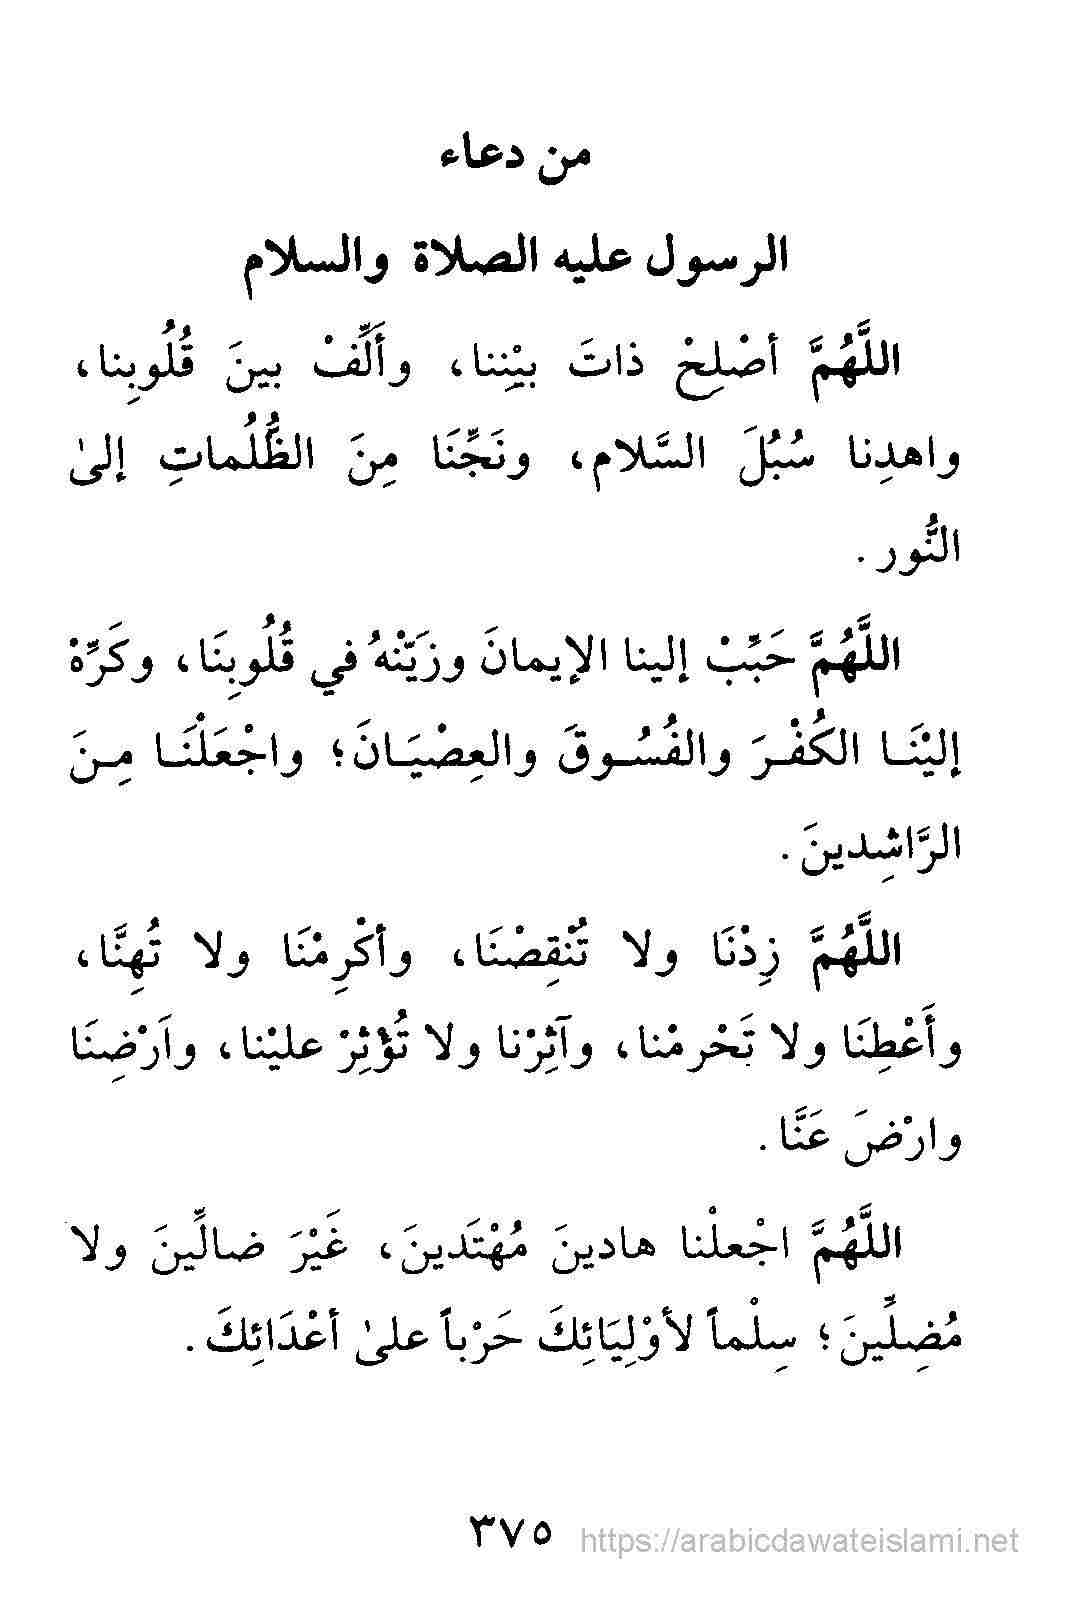 من دعاء
الرسول عليه الصلاة والسلام
اللَّهُمَّ أصْلِحْ ذاتَ بيْنِنا، وأَلِّفْ بينَ قُلُوبِنا،
واهدِنا سُبُلَ السَّلام، ونَجِّنَا مِنَ الظُّلُماتِ إلىٰ
النُّور .
اللَّهُمَّ حَبِّبْ إلينا الإيمانَ وزَيّنْهُ في قُلُوبِنَا، وكَرِّهْ
إليْنَـا الكُفْـرَ والفُسُـوقَ والعِصْيَـانَ؛ واجْعَلْنَـا مِـنَ
الرَّاشِدينَ .
اللَّهُمَّ زِدْنَا ولا تُنْقِصْنَا، وأكْرِمْنَا ولا تُهِنَّا،
وأَعْطِنَا ولا تَحْرِمْنا، وآثِرْنا ولا تُؤْثِرْ عليْنا، وأَرْضِنَا
وارْضَ عَنَّا .
اللَّهُمَّ اجْعلْنا هادينَ مُهْتَدينَ، غَيْرَ ضالِّينَ ولا
مُضِلِّينَ؛ سِلْماً لأوْلِيَائِكَ حَرْباً علىٰ أعْدَائِكَ .
٣٧٥ https://arabicdawateislami.net